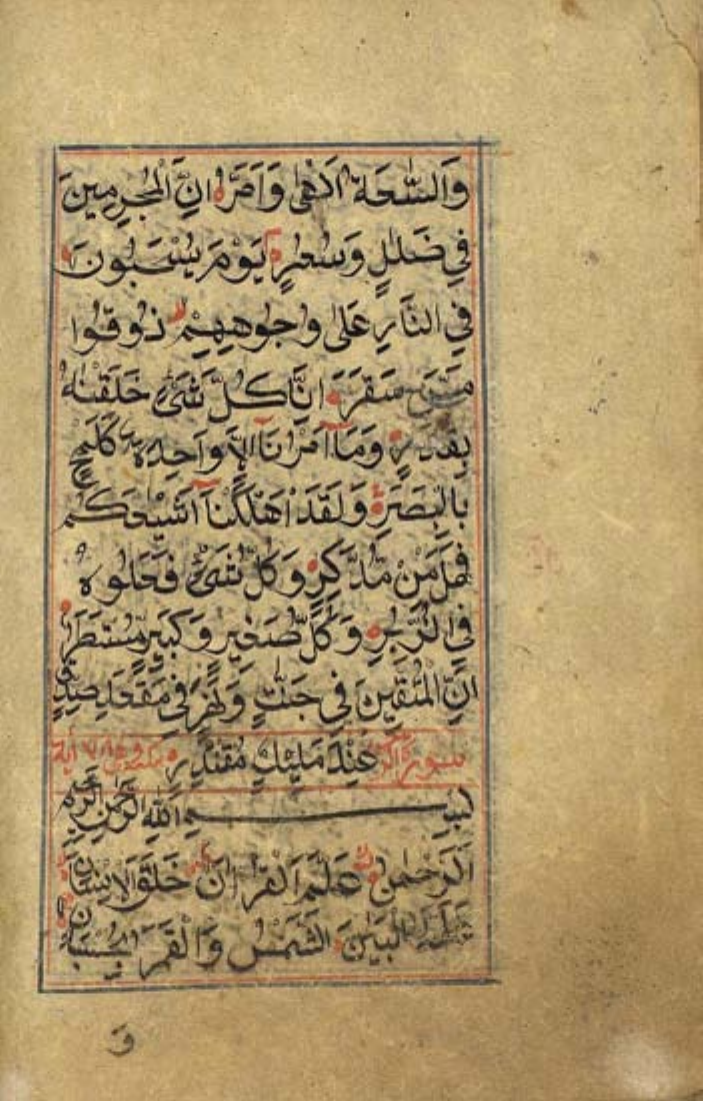 وَالسَّاعَةُ اَدْهٰى وَاَمَرُّ اِنَّ الْمُجْرِمِينَ
فِى ضَلٰلٍ وَسُعُرٍ يَوْمَ يُسْحَبُونَ
فِى النَّارِ عَلٰى وُجُوهِهِمْ ذُوقُوا
مَسَّ سَقَرَ اِنَّا كُلَّ شَىْءٍ خَلَقْنٰهُ
بِقَدَرٍ وَمَآ اَمْرُنَآ اِلَّا وَاحِدَةٌ كَلَمْحٍ
بِالْبَصَرِ وَلَقَدْ اَهْلَكْنَآ اَشْيَاعَكُمْ
فَهَلْ مِنْ مُدَّكِرٍ وَكُلُّ شَىْءٍ فَعَلُوهُ
فِى الزُّبُرِ وَكُلُّ صَغِيرٍ وَكَبِيرٍ مُسْتَطَرٌ
اِنَّ الْمُتَّقِينَ فِى جَنّٰتٍ وَنَهَرٍ فِى مَقْعَدِ صِدْقٍ
سورة عِنْدَ مَلِيكٍ مُقْتَدِرٍ ٧٨ اية
بِسْمِ اللهِ الرَّحْمٰنِ الرَّحِيمِ
اَلرَّحْمٰنُ عَلَّمَ الْقُرْاٰنَ خَلَقَ الْاِنْسَانَ
عَلَّمَهُ الْبَيَانَ الشَّمْسُ وَالْقَمَرُ بِحُسْبَانٍ
وَ